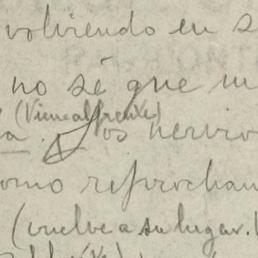 volviendo en s
no sé que m
(Viene al frente)
a. Los nervio
omo reprochan
(vuelve a su lugar.